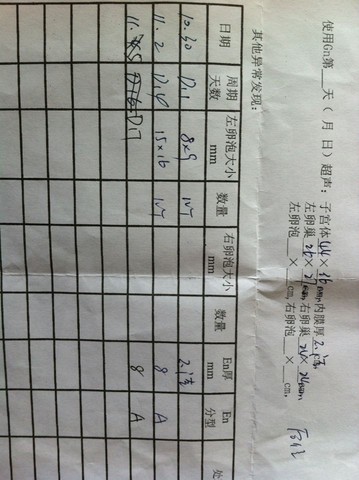 使用Gn第__天（ 月 日）超声：子宫体44×16mm内膜厚
左卵巢26×21mm右卵巢24×24mm
左卵泡__×__cm,右卵泡__×__cm,
其他异常发现：
日期 周期天数 左卵泡大小mm 数量 右卵泡大小mm 数量 En厚mm En分型 处
10.30 8×9
11.2 15×16 8 A
11. D17 8 A